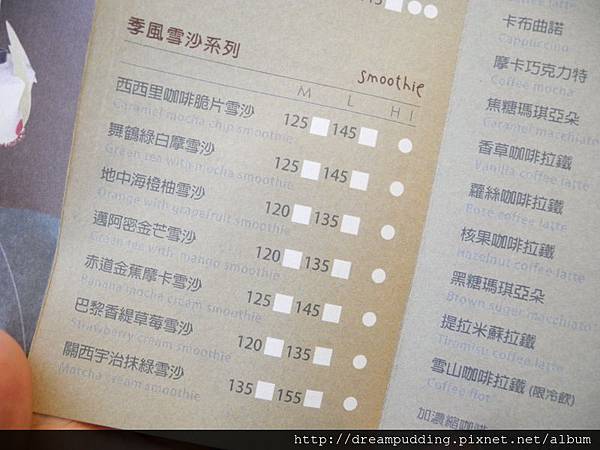 季風雪沙系列
smoothie
M L H I
西西里咖啡脆片雪沙 125 145
Caramel mocha chip smoothie
舞鶴綠白摩雪沙 125 145
Green tea with mocha smoothie
地中海橙柚雪沙 120 135
Orange with grapefruit smoothie
邁阿密金芒雪沙 120 135
Green tea with mango smoothie
赤道金蕉摩卡雪沙 125 145
Banana mocha cream smoothie
巴黎香緹草莓雪沙 120 135
Strawberry cream smoothie
關西宇治抹綠雪沙 135 155
Matcha cream smoothie
卡布曲諾
Cappuccino
摩卡巧克力特
Coffee mocha
焦糖瑪琪亞朵
Caramel macchiato
香草咖啡拉鐵
Vanilla coffee latte
蘿絲咖啡拉鐵
Rose coffee latte
核果咖啡拉鐵
Hazelnut coffee latte
黑糖瑪琪亞朵
Brown suger macchiato
提拉米蘇拉鐵
Tiramisu coffee latte
雪山咖啡拉鐵 (限冷飲)
Coffee flot
加濃縮咖啡
http://dreampudding.pixnet.net/album